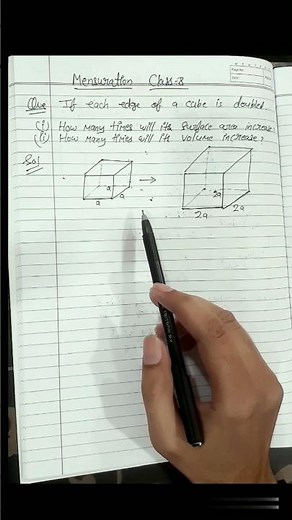 Mensuration Class-8
Que If each edge of a cube is doubled
(i) How many times will its surface area increase
(ii) How many times will its volume increase?
Sol
a a a
2a 2a 2a